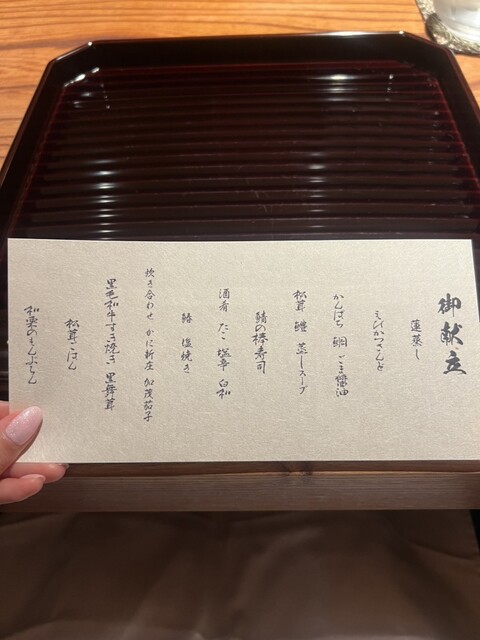 御献立
蓮蒸し
えびかつさんど
かんぱち 鯛 ごま醤油
松茸 鱧 蒸しスープ
鯖の棒寿司
酒肴 たこ 塩辛 白和
鰆 塩焼き
炊き合わせ かに新庄 加茂茄子
黒毛和牛すき焼き 黒舞茸
松茸ごはん
和栗のもんぶらん